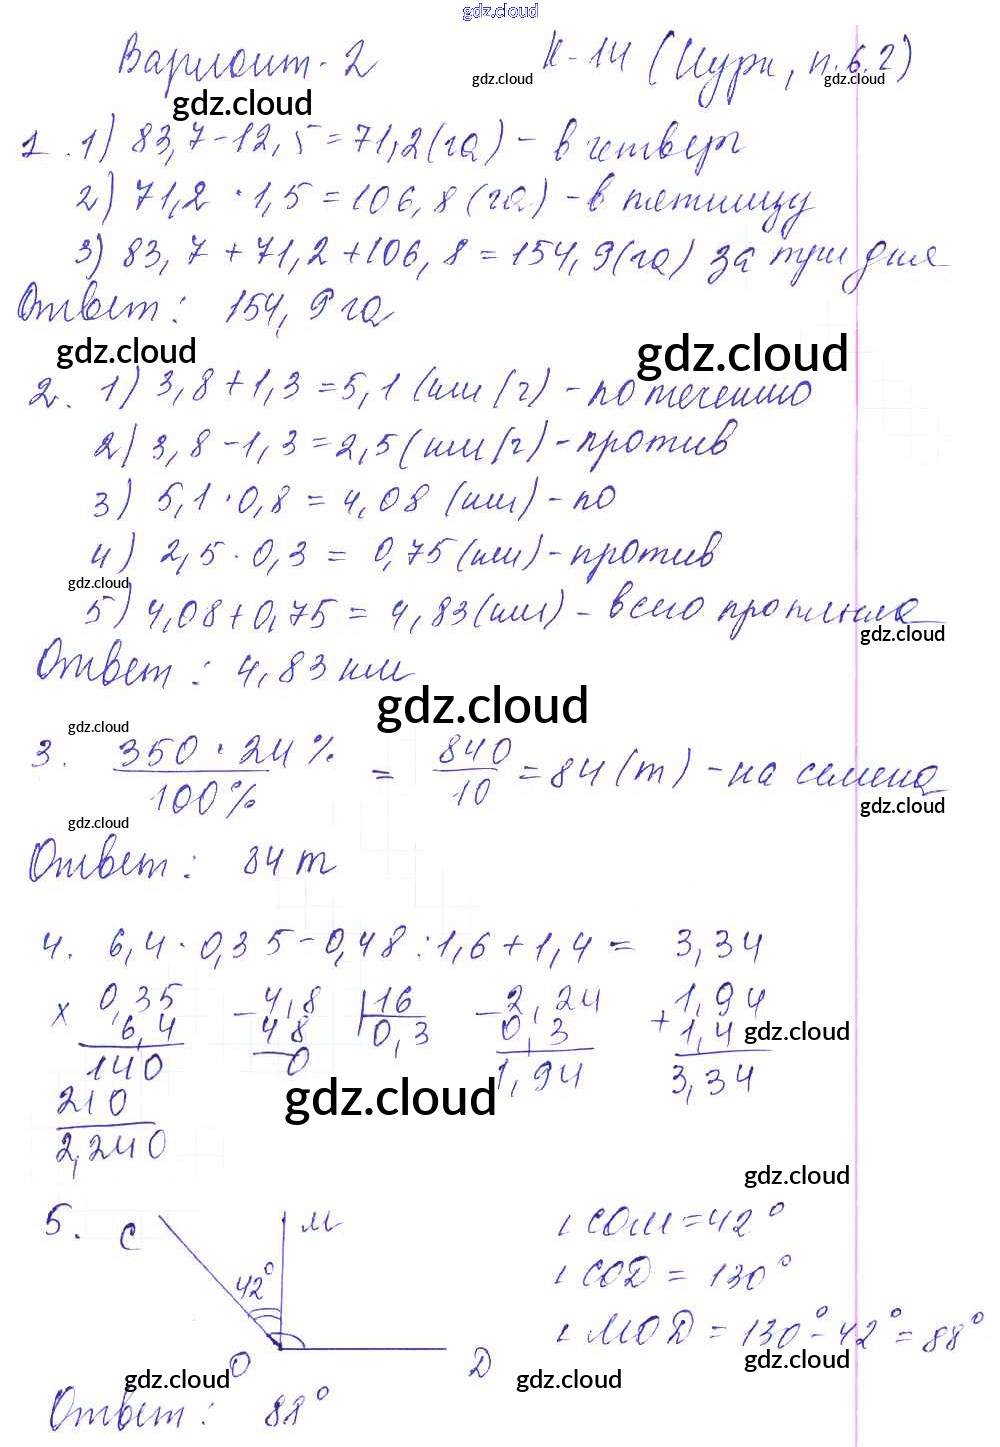 gdz.cloud
Вариант-2 К-14 (Чурк, п.6.2)
gdz.cloud gdz.cloud gdz.cloud
1. 1) 83,7-12,5=71,2(га) - в четверг
2) 71,2 · 1,5 = 106,8 (га) - в пятницу
3) 83,7 + 71,2 + 106,8 = 154,9(га) за три дня
Ответ: 154,9 га
gdz.cloud gdz.cloud
2. 1) 3,8 + 1,3 = 5,1 (км/ч) - по течению
2) 3,8 - 1,3 = 2,5 (км/ч) - против
3) 5,1 · 0,8 = 4,08 (км) - по
4) 2,5 · 0,3 = 0,75 (км) - против
gdz.cloud
5) 4,08 + 0,75 = 4,83 (км) - всего проплыла
gdz.cloud
Ответ: 4,83 км
gdz.cloud
gdz.cloud
3. 350 · 24% / 100% = 840 / 10 = 84 (т) - на семена
gdz.cloud
gdz.cloud
Ответ: 84 т
4. 6,4 · 0,35 - 0,48 : 1,6 + 1,4 = 3,34
× 0,35 - 4,8 | 16 - 2,24 + 1,94
6,4 48 0,3 0,3 1,4 gdz.cloud
140 0 1,94 3,34
210 gdz.cloud
2,240
gdz.cloud
5. C M ∠ COM = 42°
42° ∠ COD = 130°
O D ∠ MOD = 130° - 42° = 88°
gdz.cloud gdz.cloud gdz.cloud
Ответ: 88°